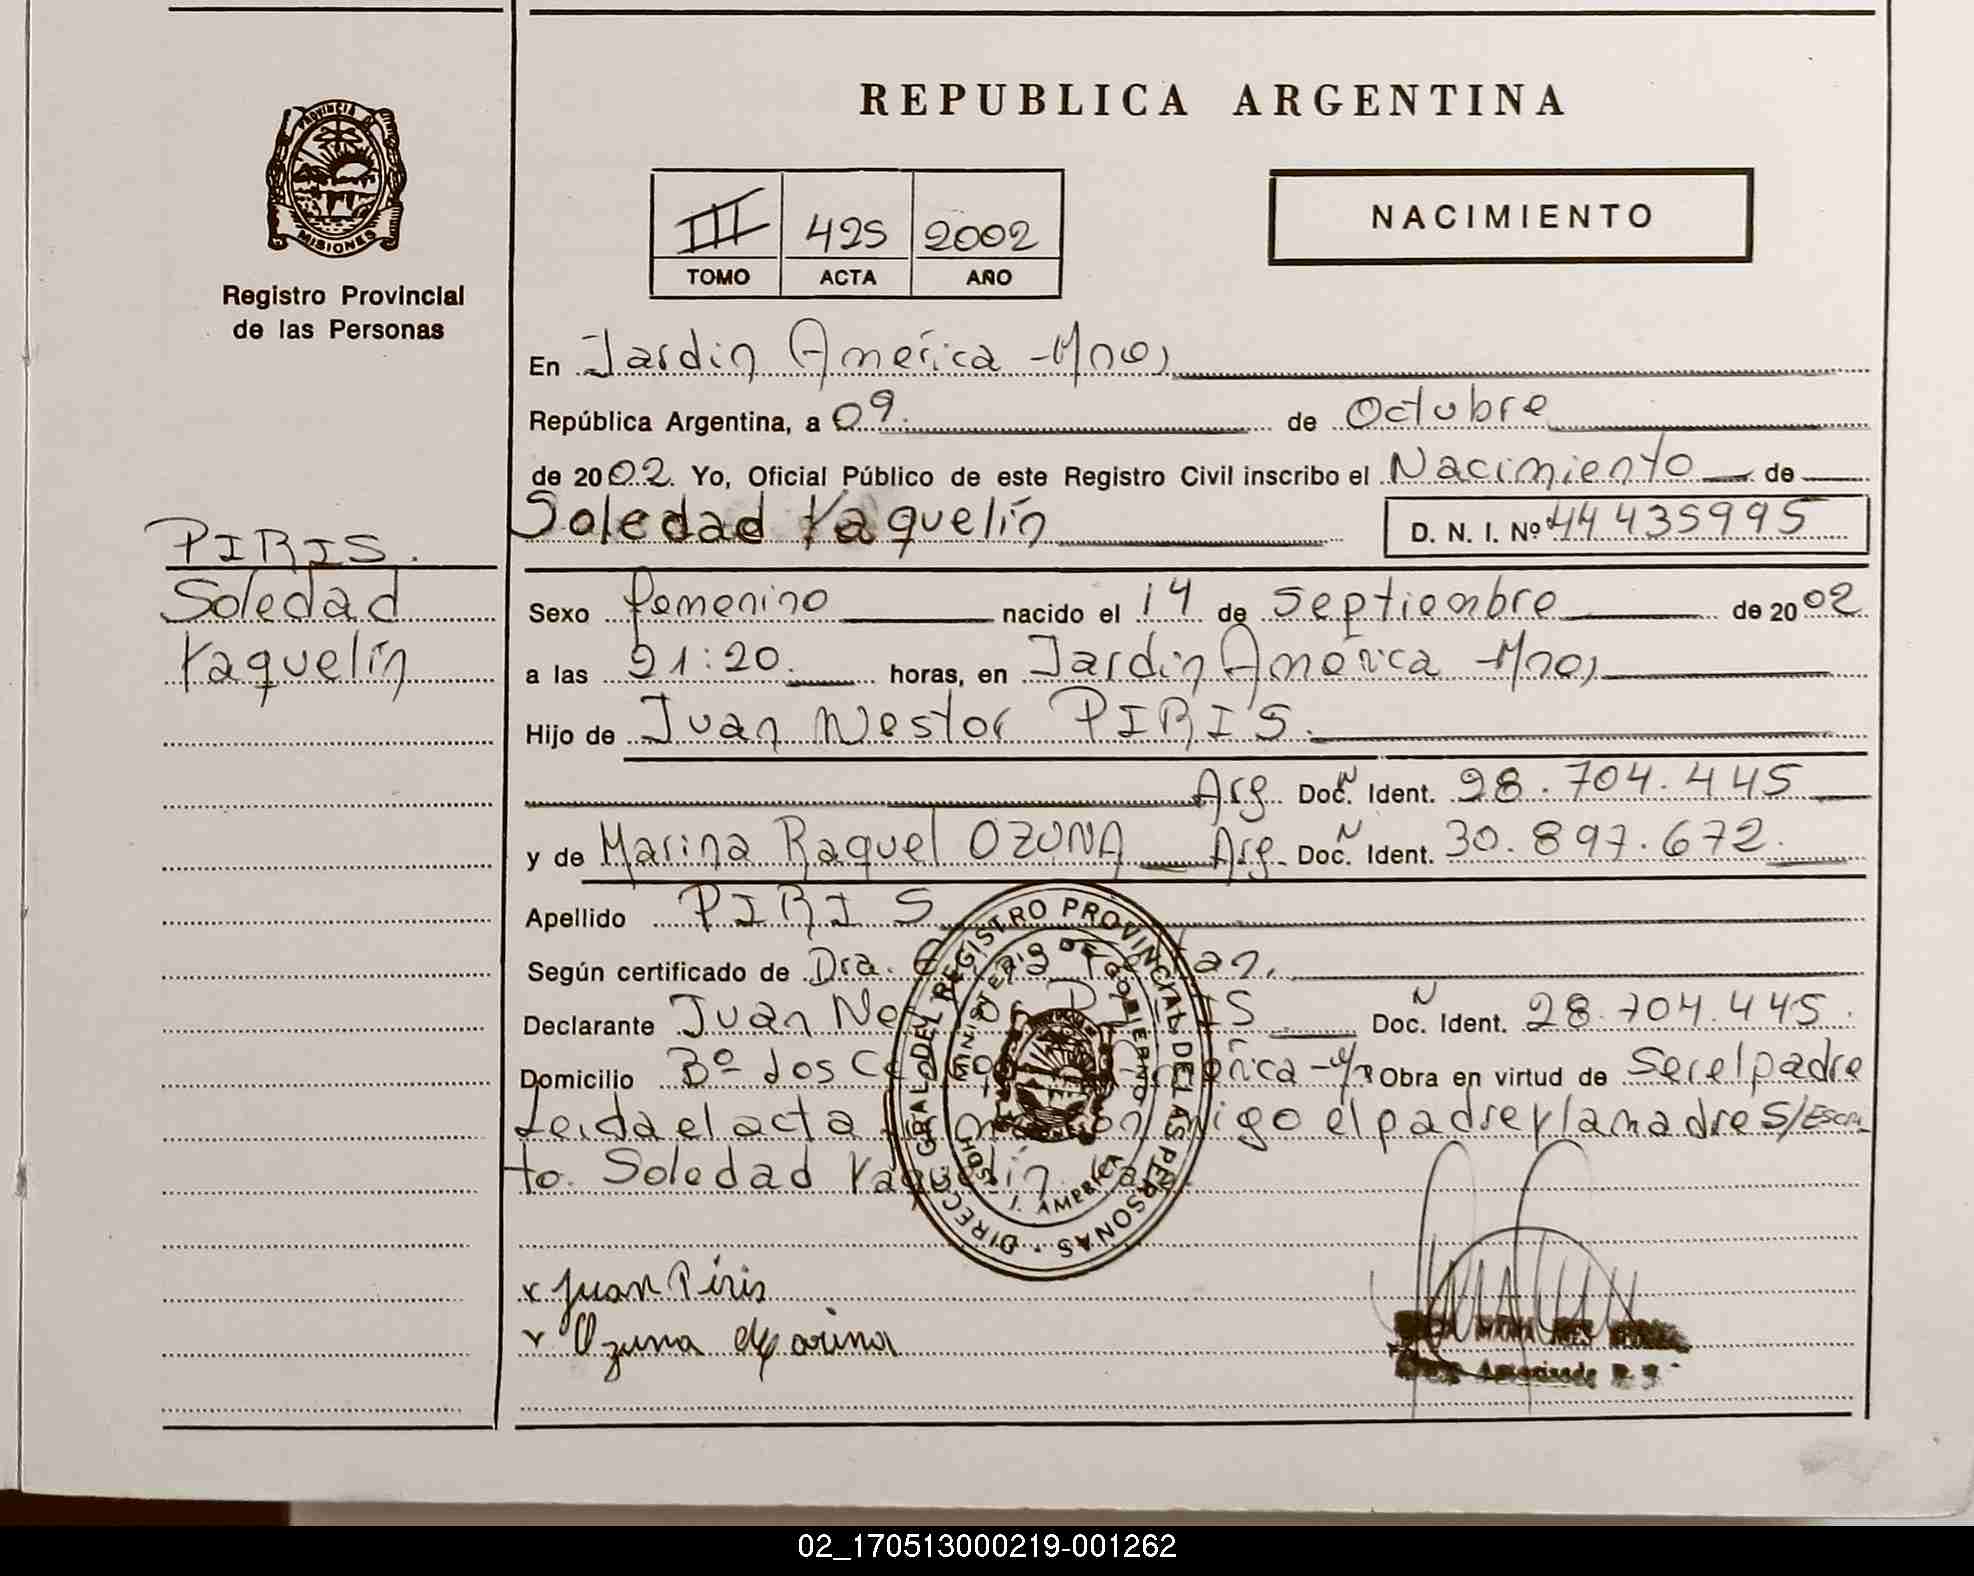 REPUBLICA ARGENTINA
PROVINCIA DE
MISIONES
Registro Provincial
de las Personas
III 425 2002
TOMO ACTA AÑO
NACIMIENTO
En Jardin América - Mnes,
República Argentina, a 09. de Octubre
de 2002. Yo, Oficial Público de este Registro Civil inscribo el Nacimiento de
Soledad Yaquelin D. N. I. Nº 44435995
PIRIS.
Soledad
Yaquelin
Sexo femenino nacido el 14 de septiembre de 2002
a las 21:20. horas, en Jardin América - Mnes,
Hijo de Juan Nestor PIRIS.
Arg. Doc. N Ident. 28.704.445
y de Marina Raquel OZUNA Arg. Doc. N Ident. 30.897.672.
Apellido PIRIS
Según certificado de Dra.
Declarante Juan Nestor PIRIS Doc. N Ident. 28.704.445.
Domicilio Bº Los América - Obra en virtud de Ser el padre
Leida el acta conmigo el padre y la madre S/Escri-
to. Soledad Yaquelin.
DIRECC. GRAL. DEL REGISTRO PROVINCIAL DE LAS PERSONAS
MINISTERIO DE GOBIERNO
J. AMERICA
x Juan Piris
x Ozuna Marina
Autorizado
02_170513000219-001262